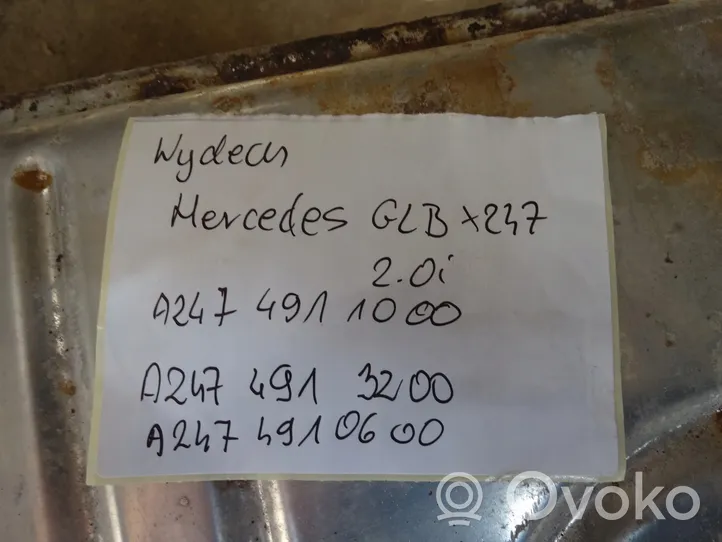 Wydech
Mercedes GLB x247
2.0i
A247 491 1000
A247 491 3200
A247 491 0600
Ovoko